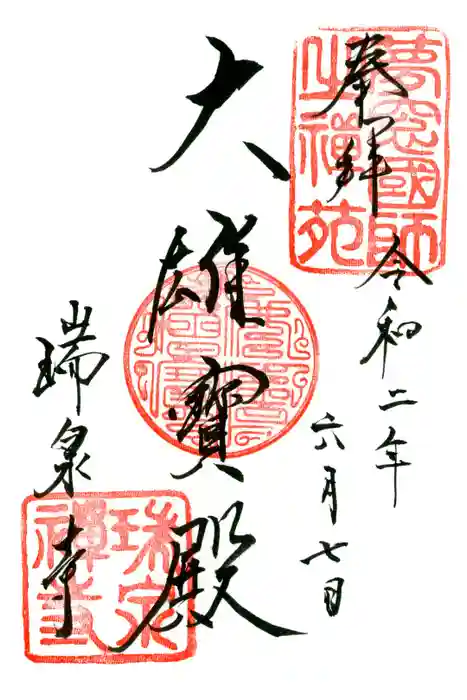 奉拝
夢窓國師
之禅苑
令和二年
六月七日
大雄寳殿
瑞泉寺
瑞泉
禅寺